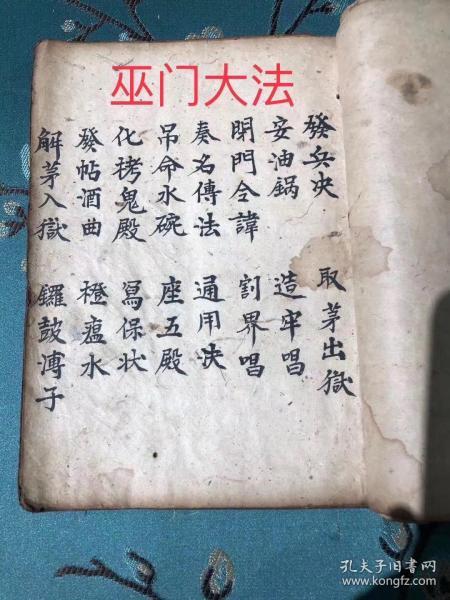 巫门大法
發兵决 取茅出獄
安油锅 造牢唱
閉門令諱 割界唱
奏名傳法 通用决
吊命水碗 座五殿
化拷鬼殿 寫保状
發帖酒曲 橙瘟水
解茅入獄 鑼鼓溥子
孔夫子旧书网
www.kongfz.com